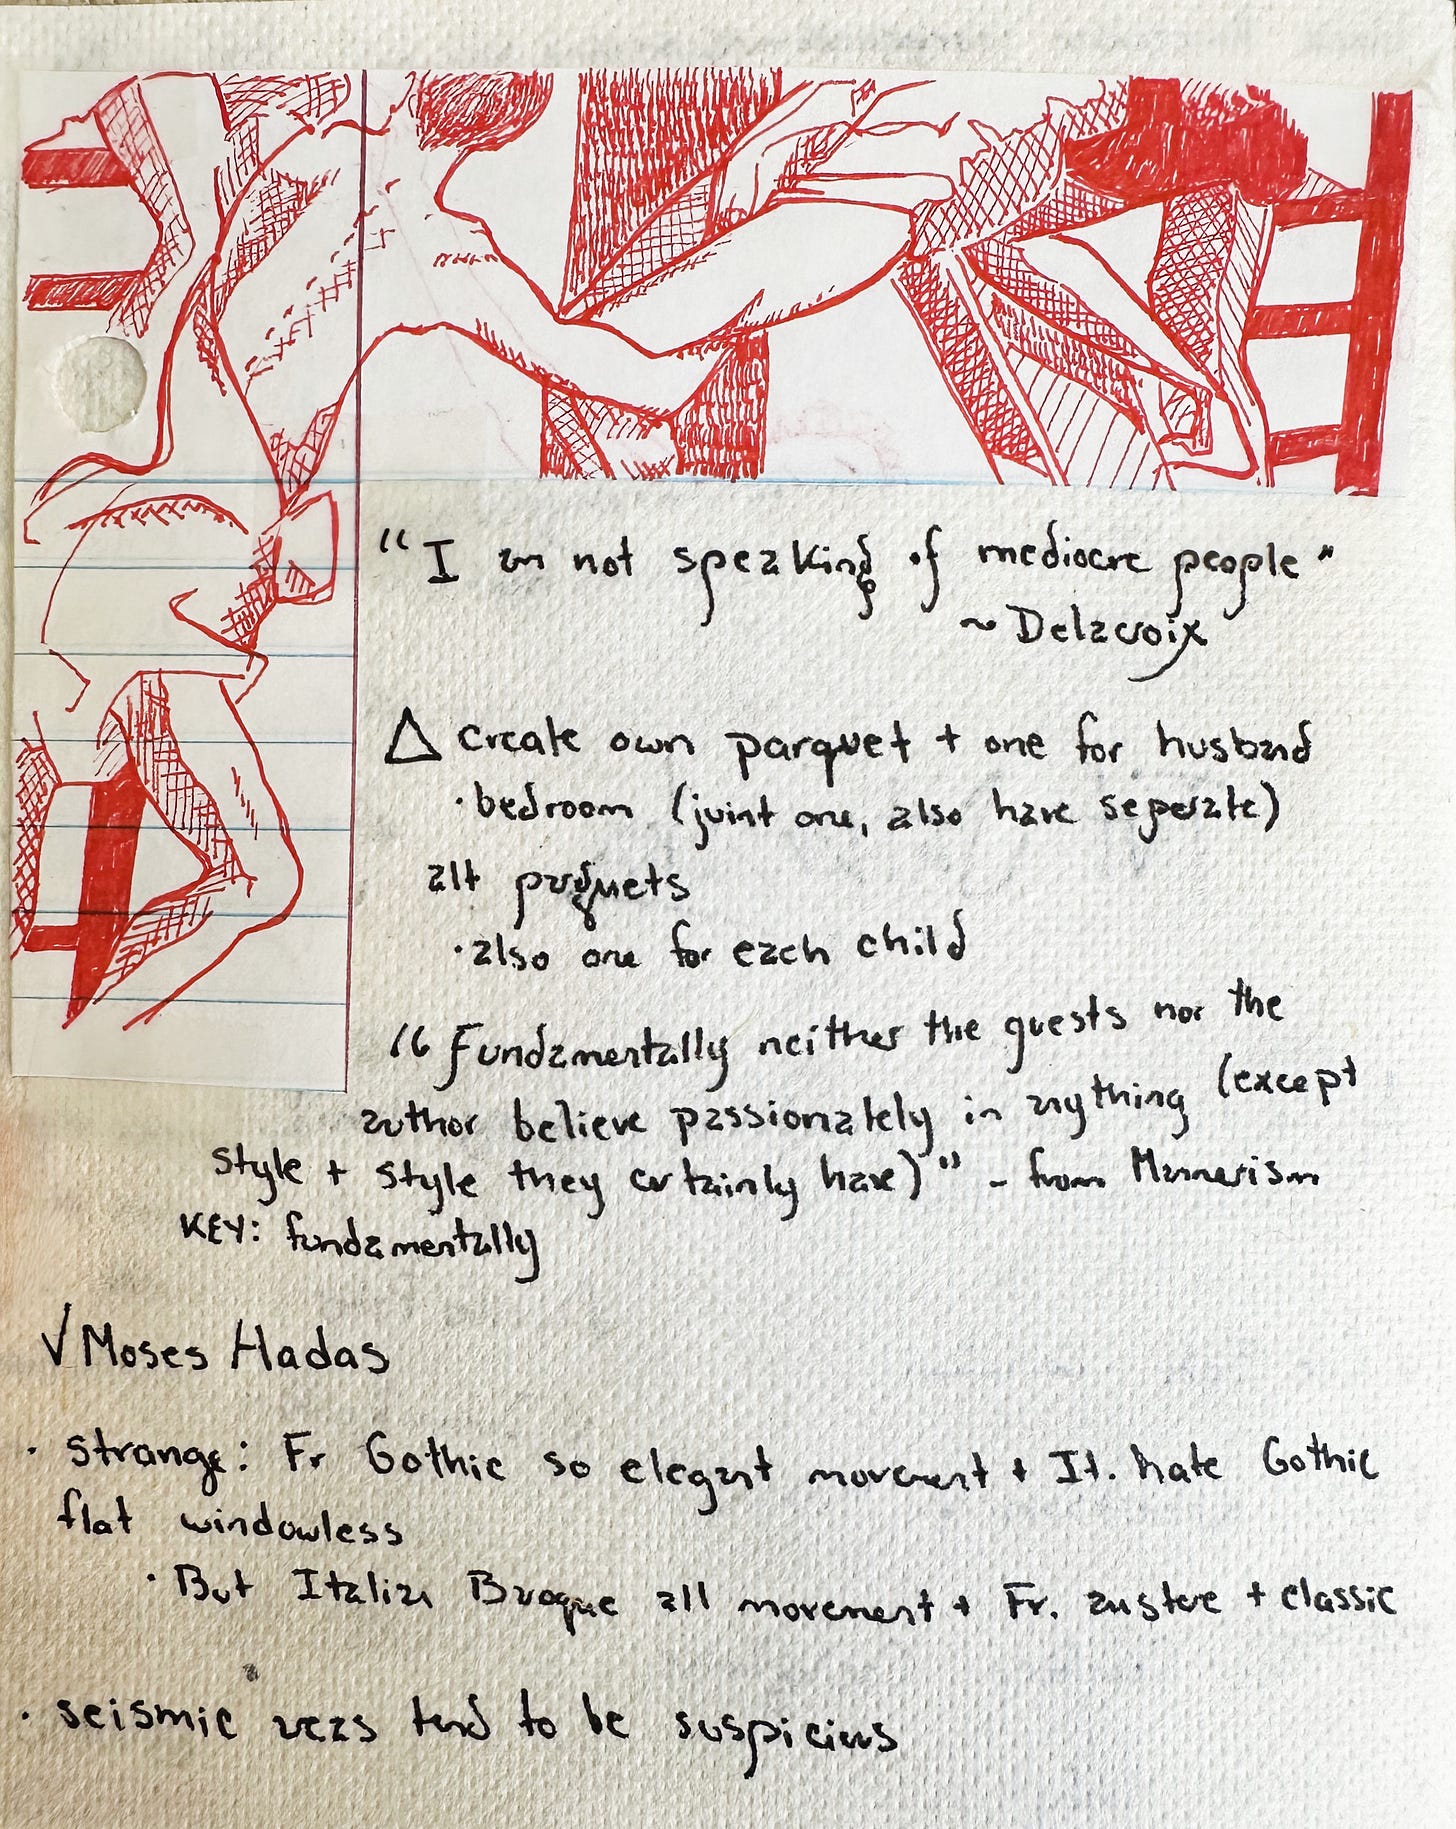 "I am not speaking of mediocre people"
~ Delacroix
△ create own parquet + one for husband
· bedroom (joint one, also have seperate)
all parquets
· also one for each child
"Fundamentally neither the guests nor the
author believe passionately in anything (except
style + style they certainly have)" - from Mannerism
KEY: fundamentally
√ Moses Hadas
· strange: Fr Gothic so elegant movement + It. hate Gothic
flat windowless
· But Italian Baroque all movement + Fr. austere + classic
· seismic areas tend to be suspicious